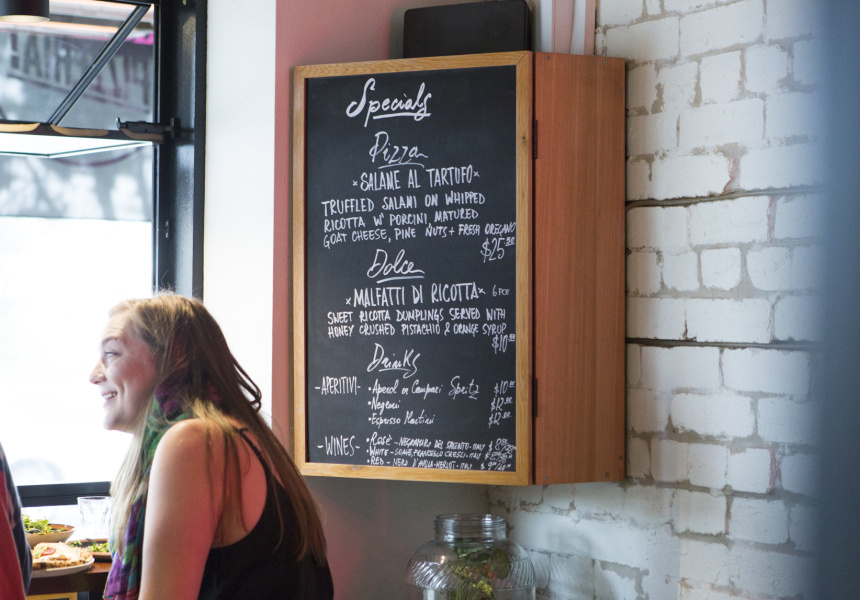 Specials
Pizza
×SALAME AL TARTUFO×
TRUFFLED SALAMI ON WHIPPED
RICOTTA W/ PORCINI, MATURED
GOAT CHEESE, PINE NUTS + FRESH OREGANO
$25.00
Dolce
×MALFATTI DI RICOTTA× 6 PCE
SWEET RICOTTA DUMPLINGS SERVED WITH
HONEY CRUSHED PISTACHIO & ORANGE SYRUP
$10.00
Drinks
-APERITIVI- •Aperol or Campari Spritz $10.00
•Negroni $12.00
•Espresso Martini $12.00
-WINES- •Rosè - NEGROAMARO DEL SALENTO - ITALY
•WHITE - SOAVE, FRANCESCO CRESCI - ITALY
•RED - NERO D'AVOLA - MERLOT - ITALY